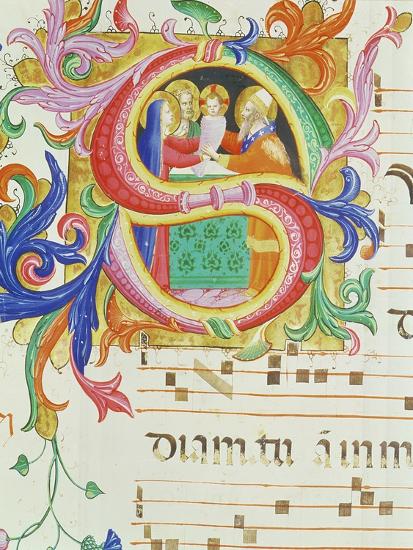 S
diam tu ā in m